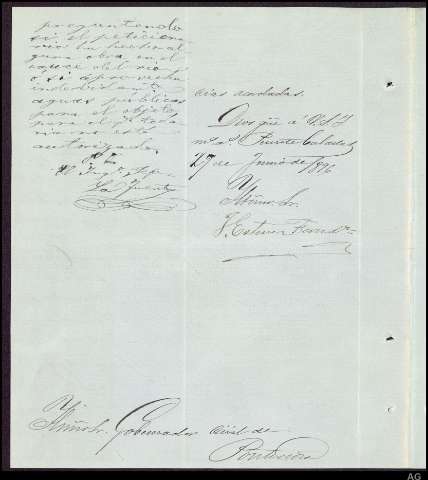 preguntando
si el peticiona
rio ha hecho al
guna obra en el
cauce del rio
o si aprovecha
indevidamte
aguas publicas
para el objeto
para el qe toda
via no está
autorizado.
El Ingo Jefe
La Fuente
cias acordadas.
Dios gûe á V.S.I.
ms as. Puente Caldelas
27 de Junio de 1896
Yltmo. Sr.
Yltmo Sr. Gobernador Civil de
Pontevedra
AG